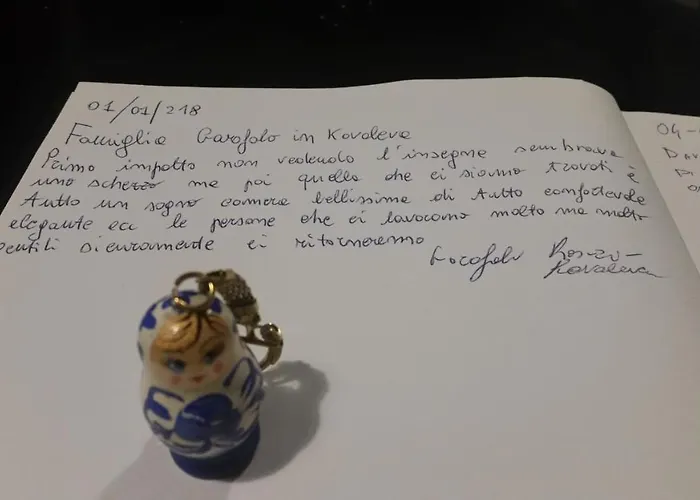 01/01/218
Famiglia Garofolo in Kovaleva
Primo impatto non vedendo l'insegne sembrava
uno scherzo me poi quello che ci siamo trovati è
tutto un sogno camera bellissima di tutto confortevole
elegante ed le persone che ci lavorano molto ma molto
gentili sicuramente ci ritorneremo
Garofolo
Kovaleva
04-